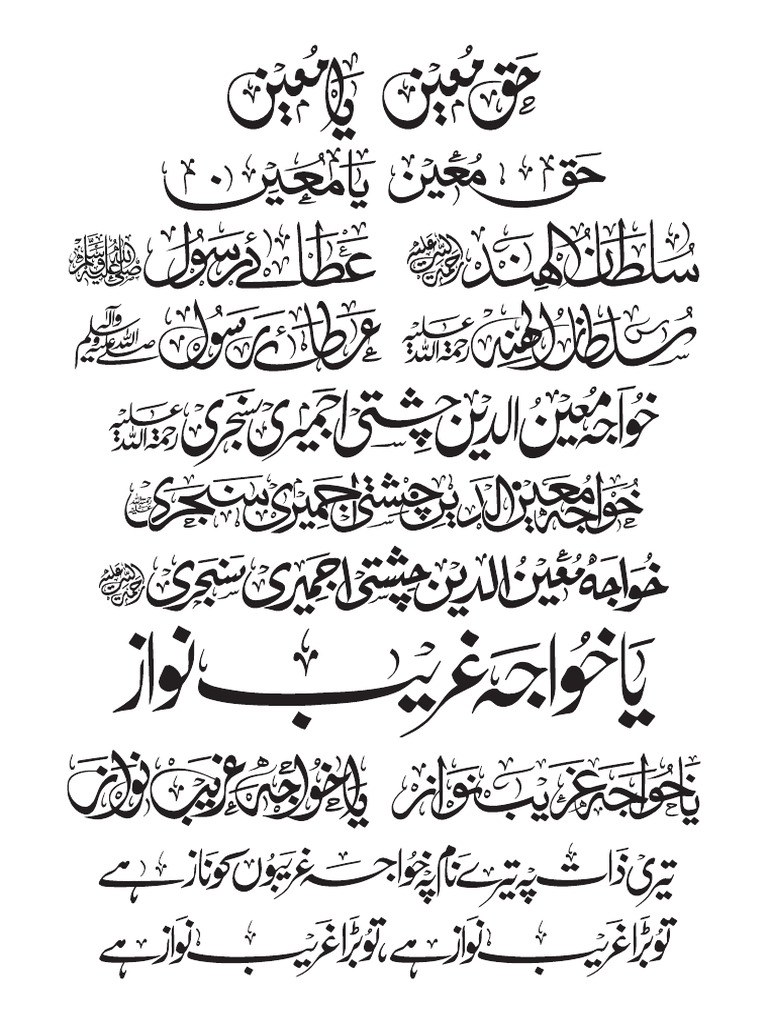 حق معین یا معین
حق معین یا معین
سلطان الہند رحمۃ اللہ علیہ عطائے رسول صلی اللہ علیہ وسلم
سلطان الہند رحمۃ اللہ علیہ عطائے رسول صلی اللہ علیہ وآلہ وسلم
خواجہ معین الدین چشتی اجمیری سنجری رحمۃ اللہ علیہ
خواجہ معین الدین چشتی اجمیری سنجری رحمۃ اللہ علیہ
خواجہ معین الدین چشتی اجمیری سنجری رحمۃ اللہ علیہ
یا خواجہ غریب نواز
یا خواجہ غریب نواز یا خواجہ غریب نواز
تیری ذات پہ تیرے نام پہ خواجہ غریبوں کو ناز ہے
تو بڑا غریب نواز ہے، تو بڑا غریب نواز ہے